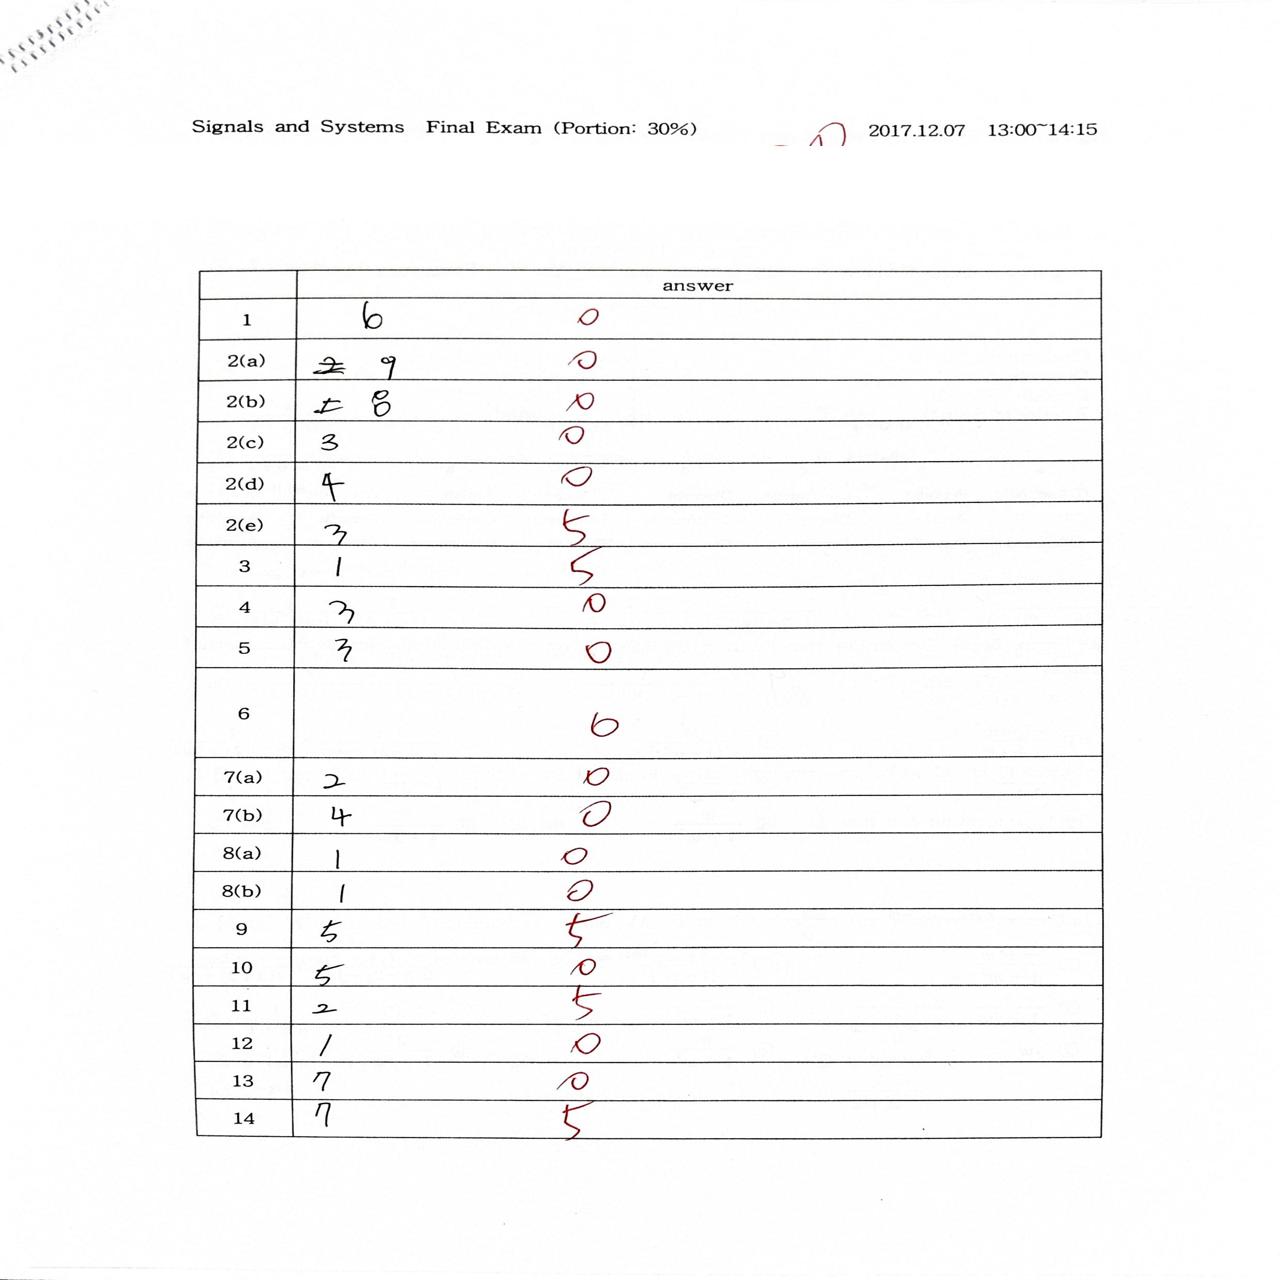 Signals and Systems Final Exam (Portion: 30%) 2017.12.07 13:00~14:15
answer
1 6 0
2(a) 9 0
2(b) 8 0
2(c) 3 0
2(d) 4 0
2(e) 3 5
3 1 5
4 3 0
5 3 0
6 6
7(a) 2 0
7(b) 4 0
8(a) 1 0
8(b) 1 0
9 5 5
10 5 0
11 2 5
12 1 0
13 7 0
14 7 5